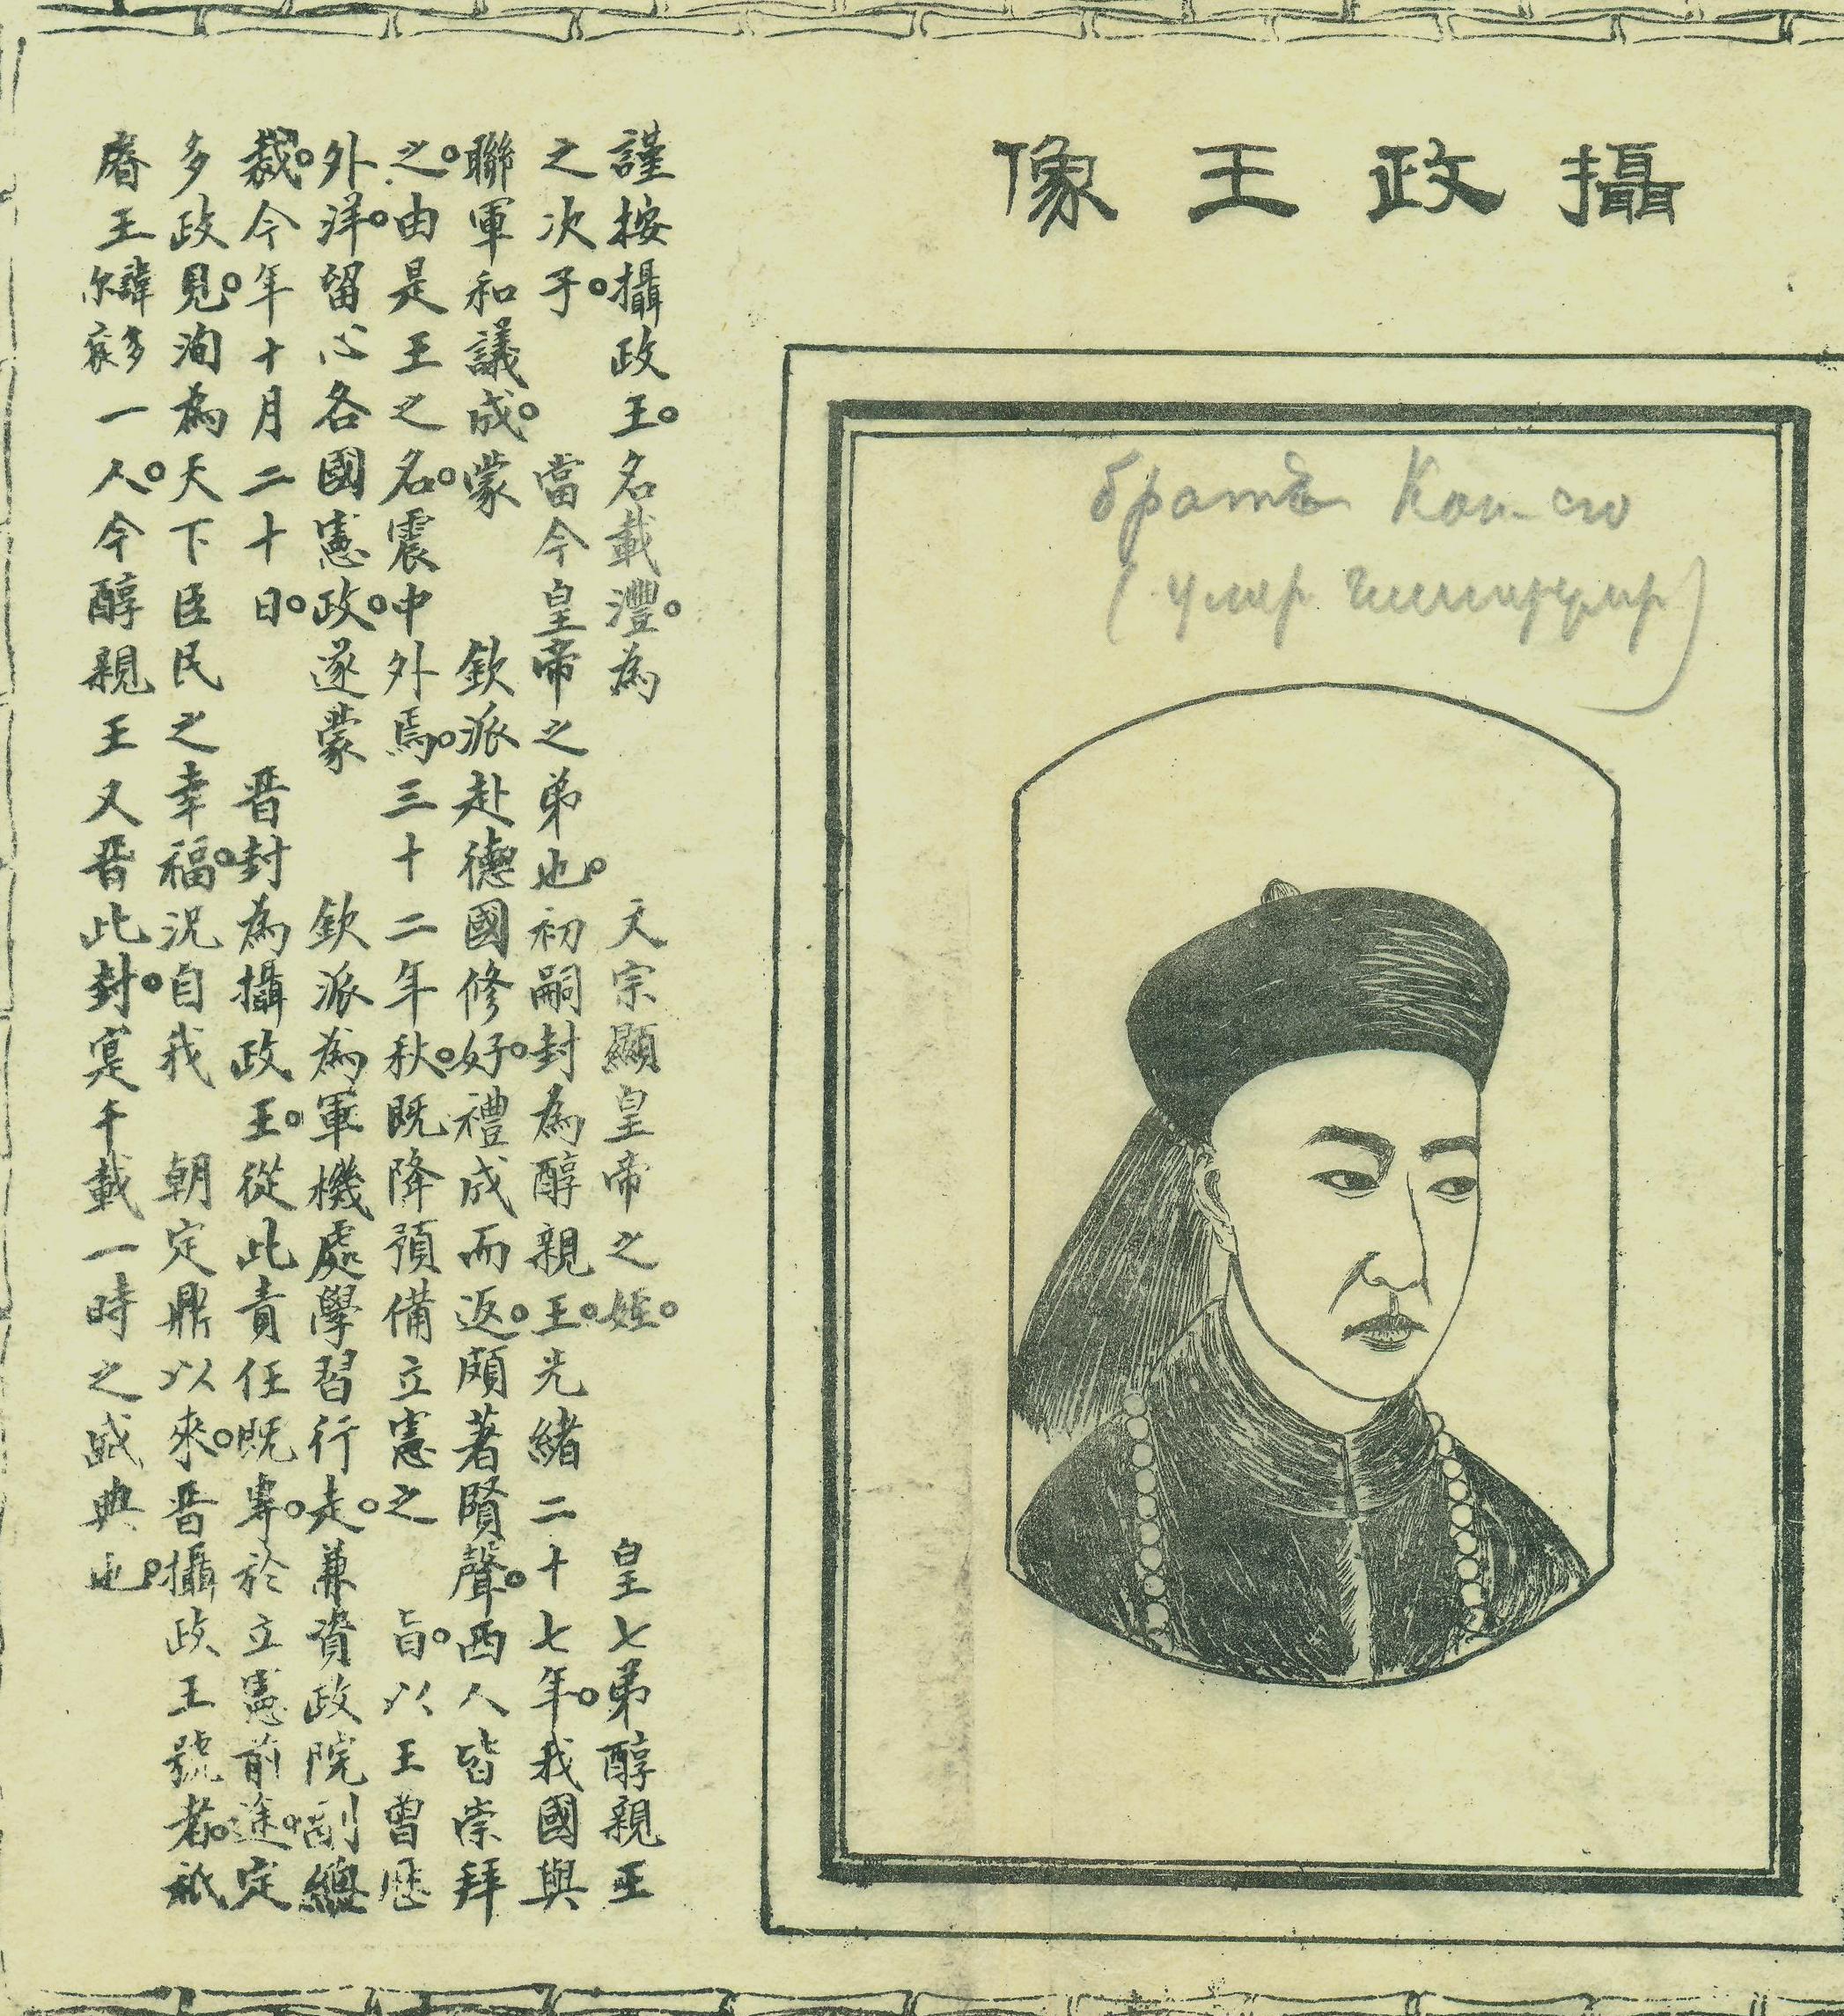 攝政王像
братъ
謹按攝政王。名載灃。為 文宗顯皇帝之姪。 皇七弟醇親王
之次子。 當今皇帝之弟也。初嗣封為醇親王。光緒二十七年。我國與
聯軍和議成。蒙 欽派赴德國修好。禮成而返。頗著賢聲。西人皆崇拜
之。由是王之名。震中外焉。三十二年秋。既降預備立憲之 旨。以王曾歷
外洋。留心各國憲政。遂蒙 欽派為軍機處學習行走。兼資政院副總
裁。今年十月二十日。 晋封為攝政王。從此責任既專。於立憲前途。定
多政見。洵為天下臣民之幸福。況自我 朝定鼎以來。晋攝政王號者。祇
睿王諱多尔袞一人。今醇親王又晋此封。寔千載一時之盛典也。